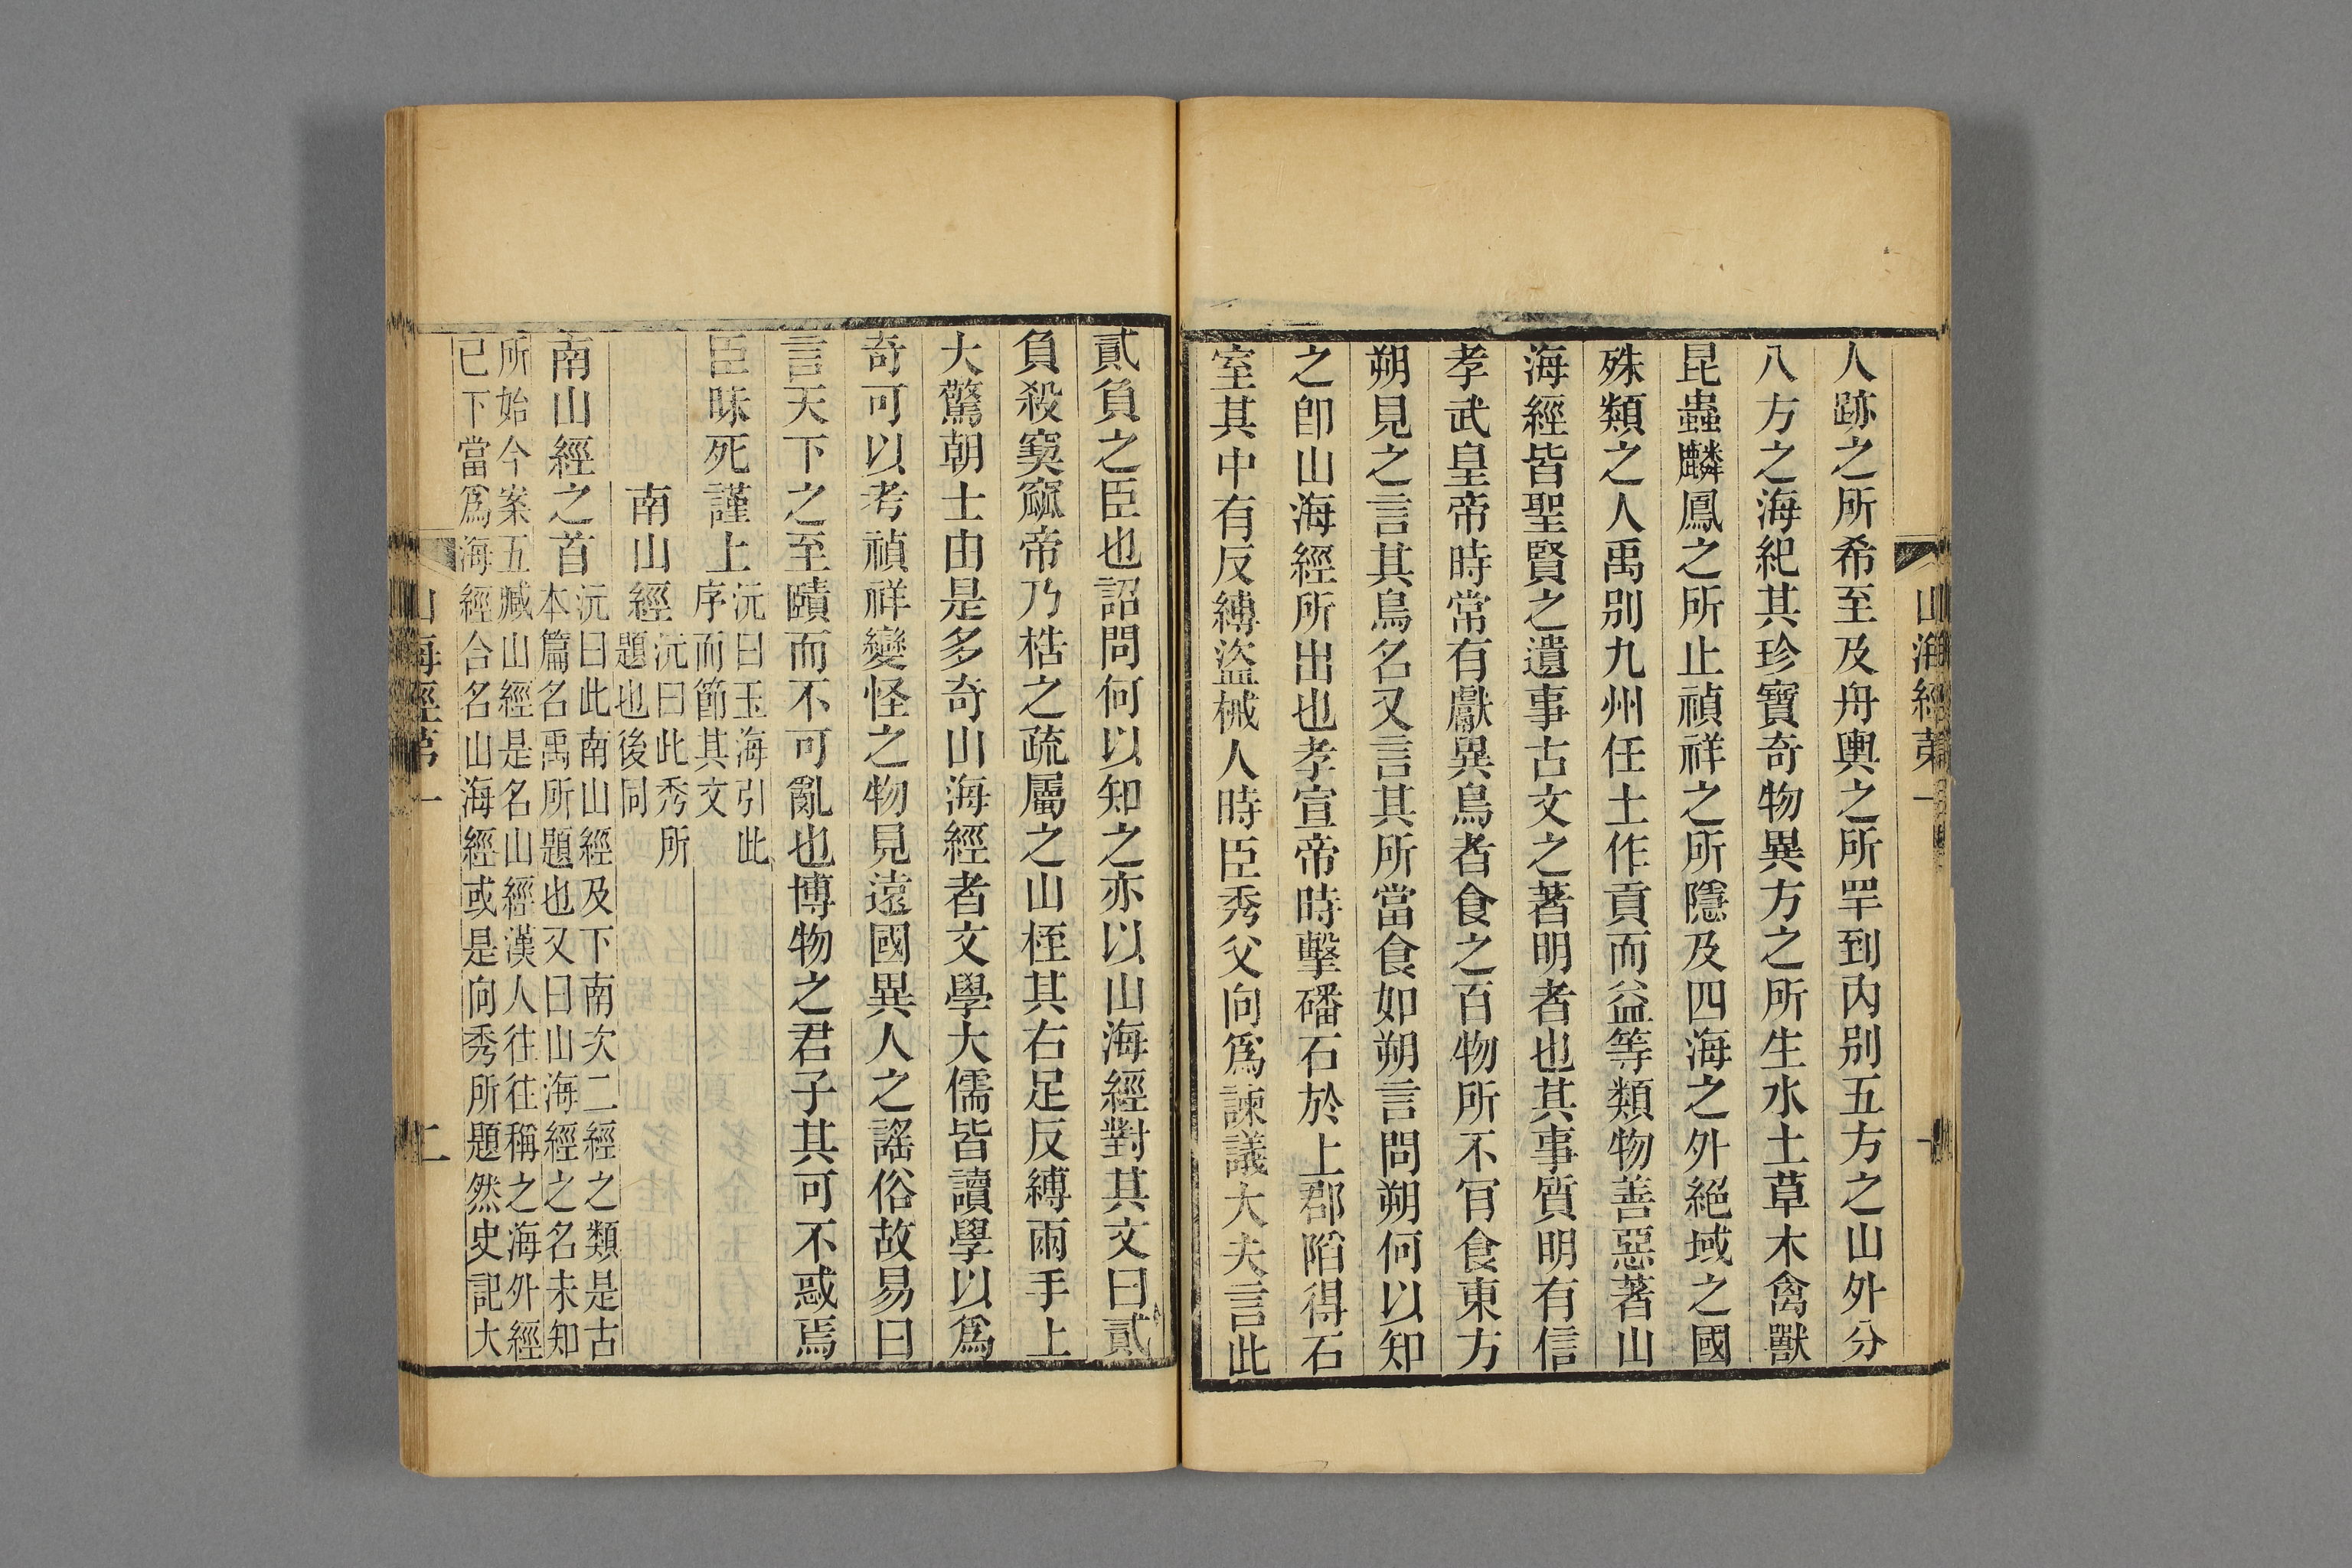 山海經第一
一
人跡之所希至及舟輿之所罕到內别五方之山外分
八方之海紀其珍寶奇物異方之所生水土草木禽獸
昆蟲麟鳳之所止禎祥之所隱及四海之外絕域之國
殊類之人禹别九州任土作貢而益等類物善惡著山
海經皆聖賢之遺事古文之著明者也其事質明有信
孝武皇帝時常有獻異鳥者食之百物所不肎食東方
朔見之言其鳥名又言其所當食如朔言問朔何以知
之卽山海經所出也孝宣帝時擊磻石於上郡陷得石
室其中有反縛盜械人時臣秀父向爲諫議大夫言此
貳負之臣也詔問何以知之亦以山海經對其文曰貳
負殺窫窳帝乃梏之疏屬之山桎其右足反縛兩手上
大驚朝士由是多奇山海經者文學大儒皆讀學以爲
奇可以考禎祥變怪之物見遠國異人之謠俗故易曰
言天下之至賾而不可亂也博物之君子其可不惑焉
臣昧死謹上
沅曰玉海引此
序而節其文
南山經
沅曰此秀所
題也後同
南山經之首
沅曰此南山經及下南次二經之類是古
本篇名禹所題也又曰山海經之名未知
所始今案五臧山經是名山經漢人往往稱之海外經
已下當爲海經合名山海經或是向秀所題然史記大
山海經第一
二